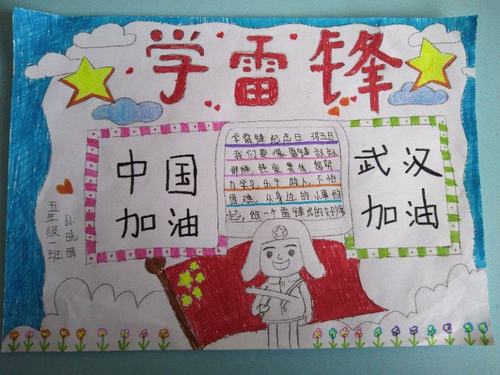 学雷锋
中国
加油
学雷锋纪念日 3月5日
我们要像雷锋叔叔
那样热爱集体帮助
同学乐于助人不怕
困难,从身边的小事做
起,做一个雷锋式的好少年
武汉
加油
五年级一班
孙晓萌